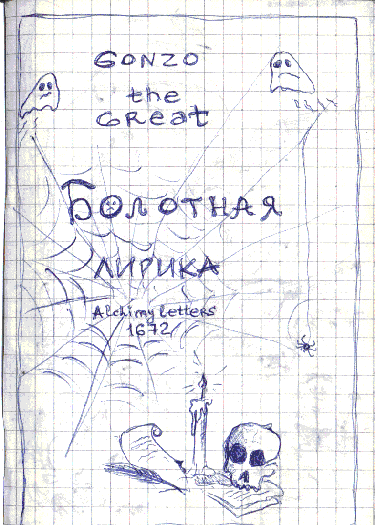 GONZO
the
GREAT
БОЛОТНАЯ
ЛИРИКА
Alchimy Letters
1672